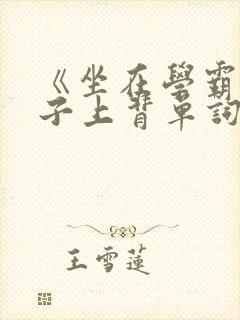 《坐在學霸
子上背單詞
王雪蓮